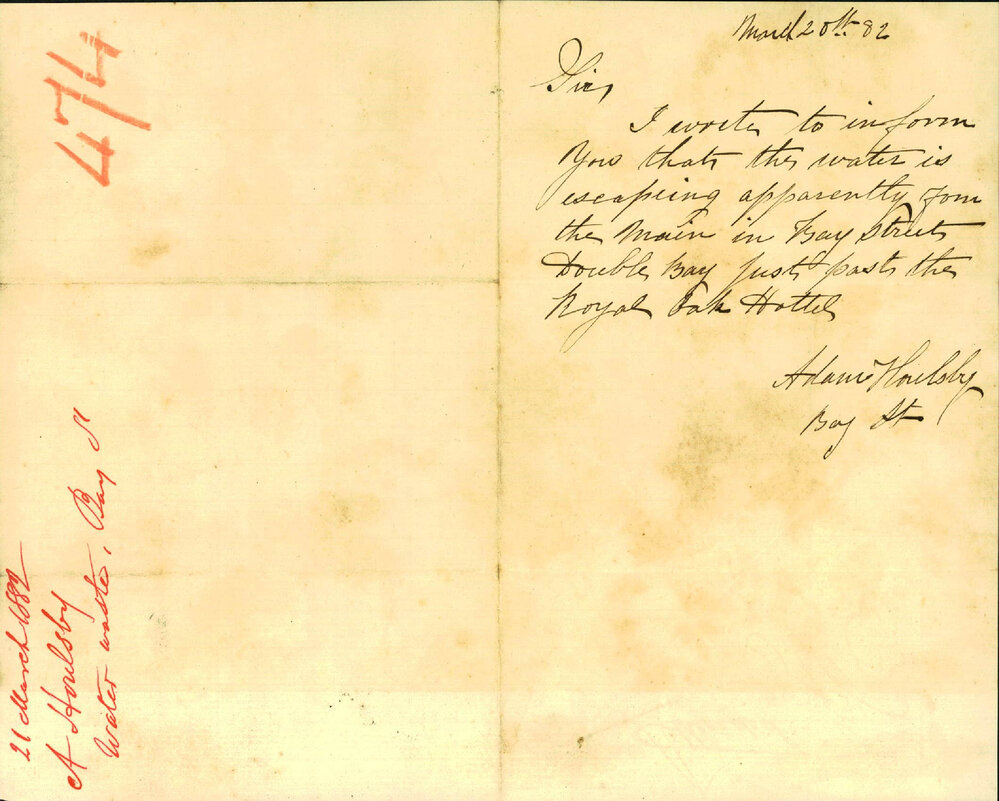 March 20th 82
Sir,
I write to inform
You that the water is
escapeing apparently fom
the Main in Bay Street
Double Bay just past the
Royal Oak Hottel
Adam Houlsby
Bay St
474
21 March 1882
A Houlsby
Water waste, Bay St